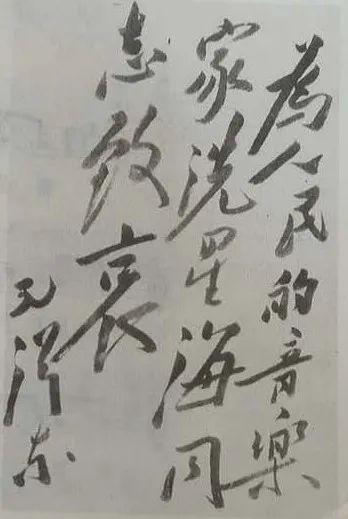 為人民的音樂
家洗星海同
志致哀
毛澤东